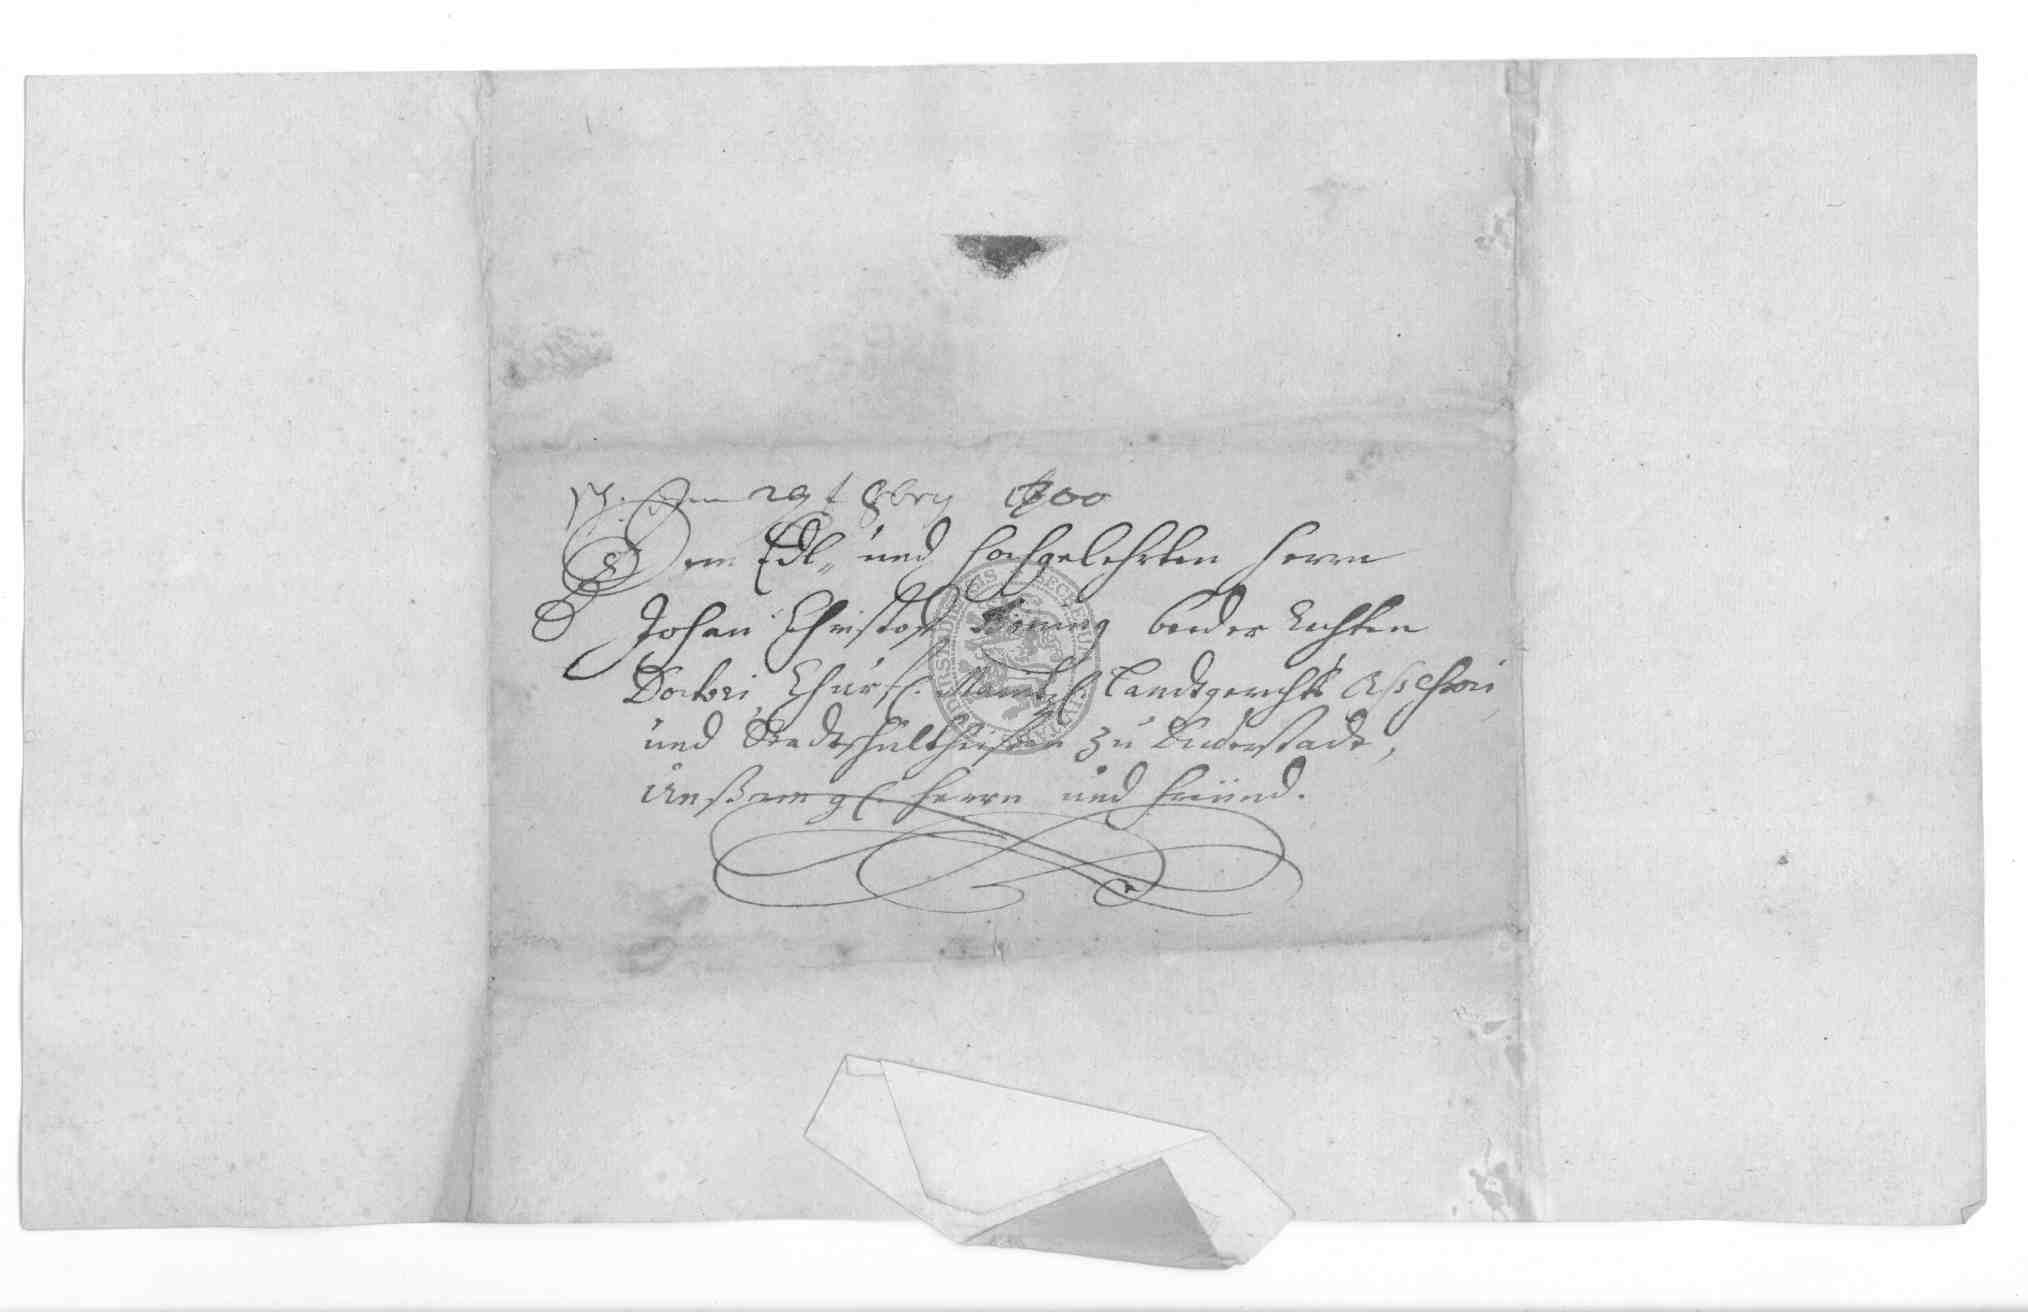 Den 29t 8bris 1700
Dem Edl„ und Hochgelehrten Herrn
Johan Christoff beeder Rechten
Doctori, Churf. Maintzl. Landtgerichts Assessori,
und Stadtschultheißen zu Duderstadt,
Unßerm gl. Herrn und Freündt.